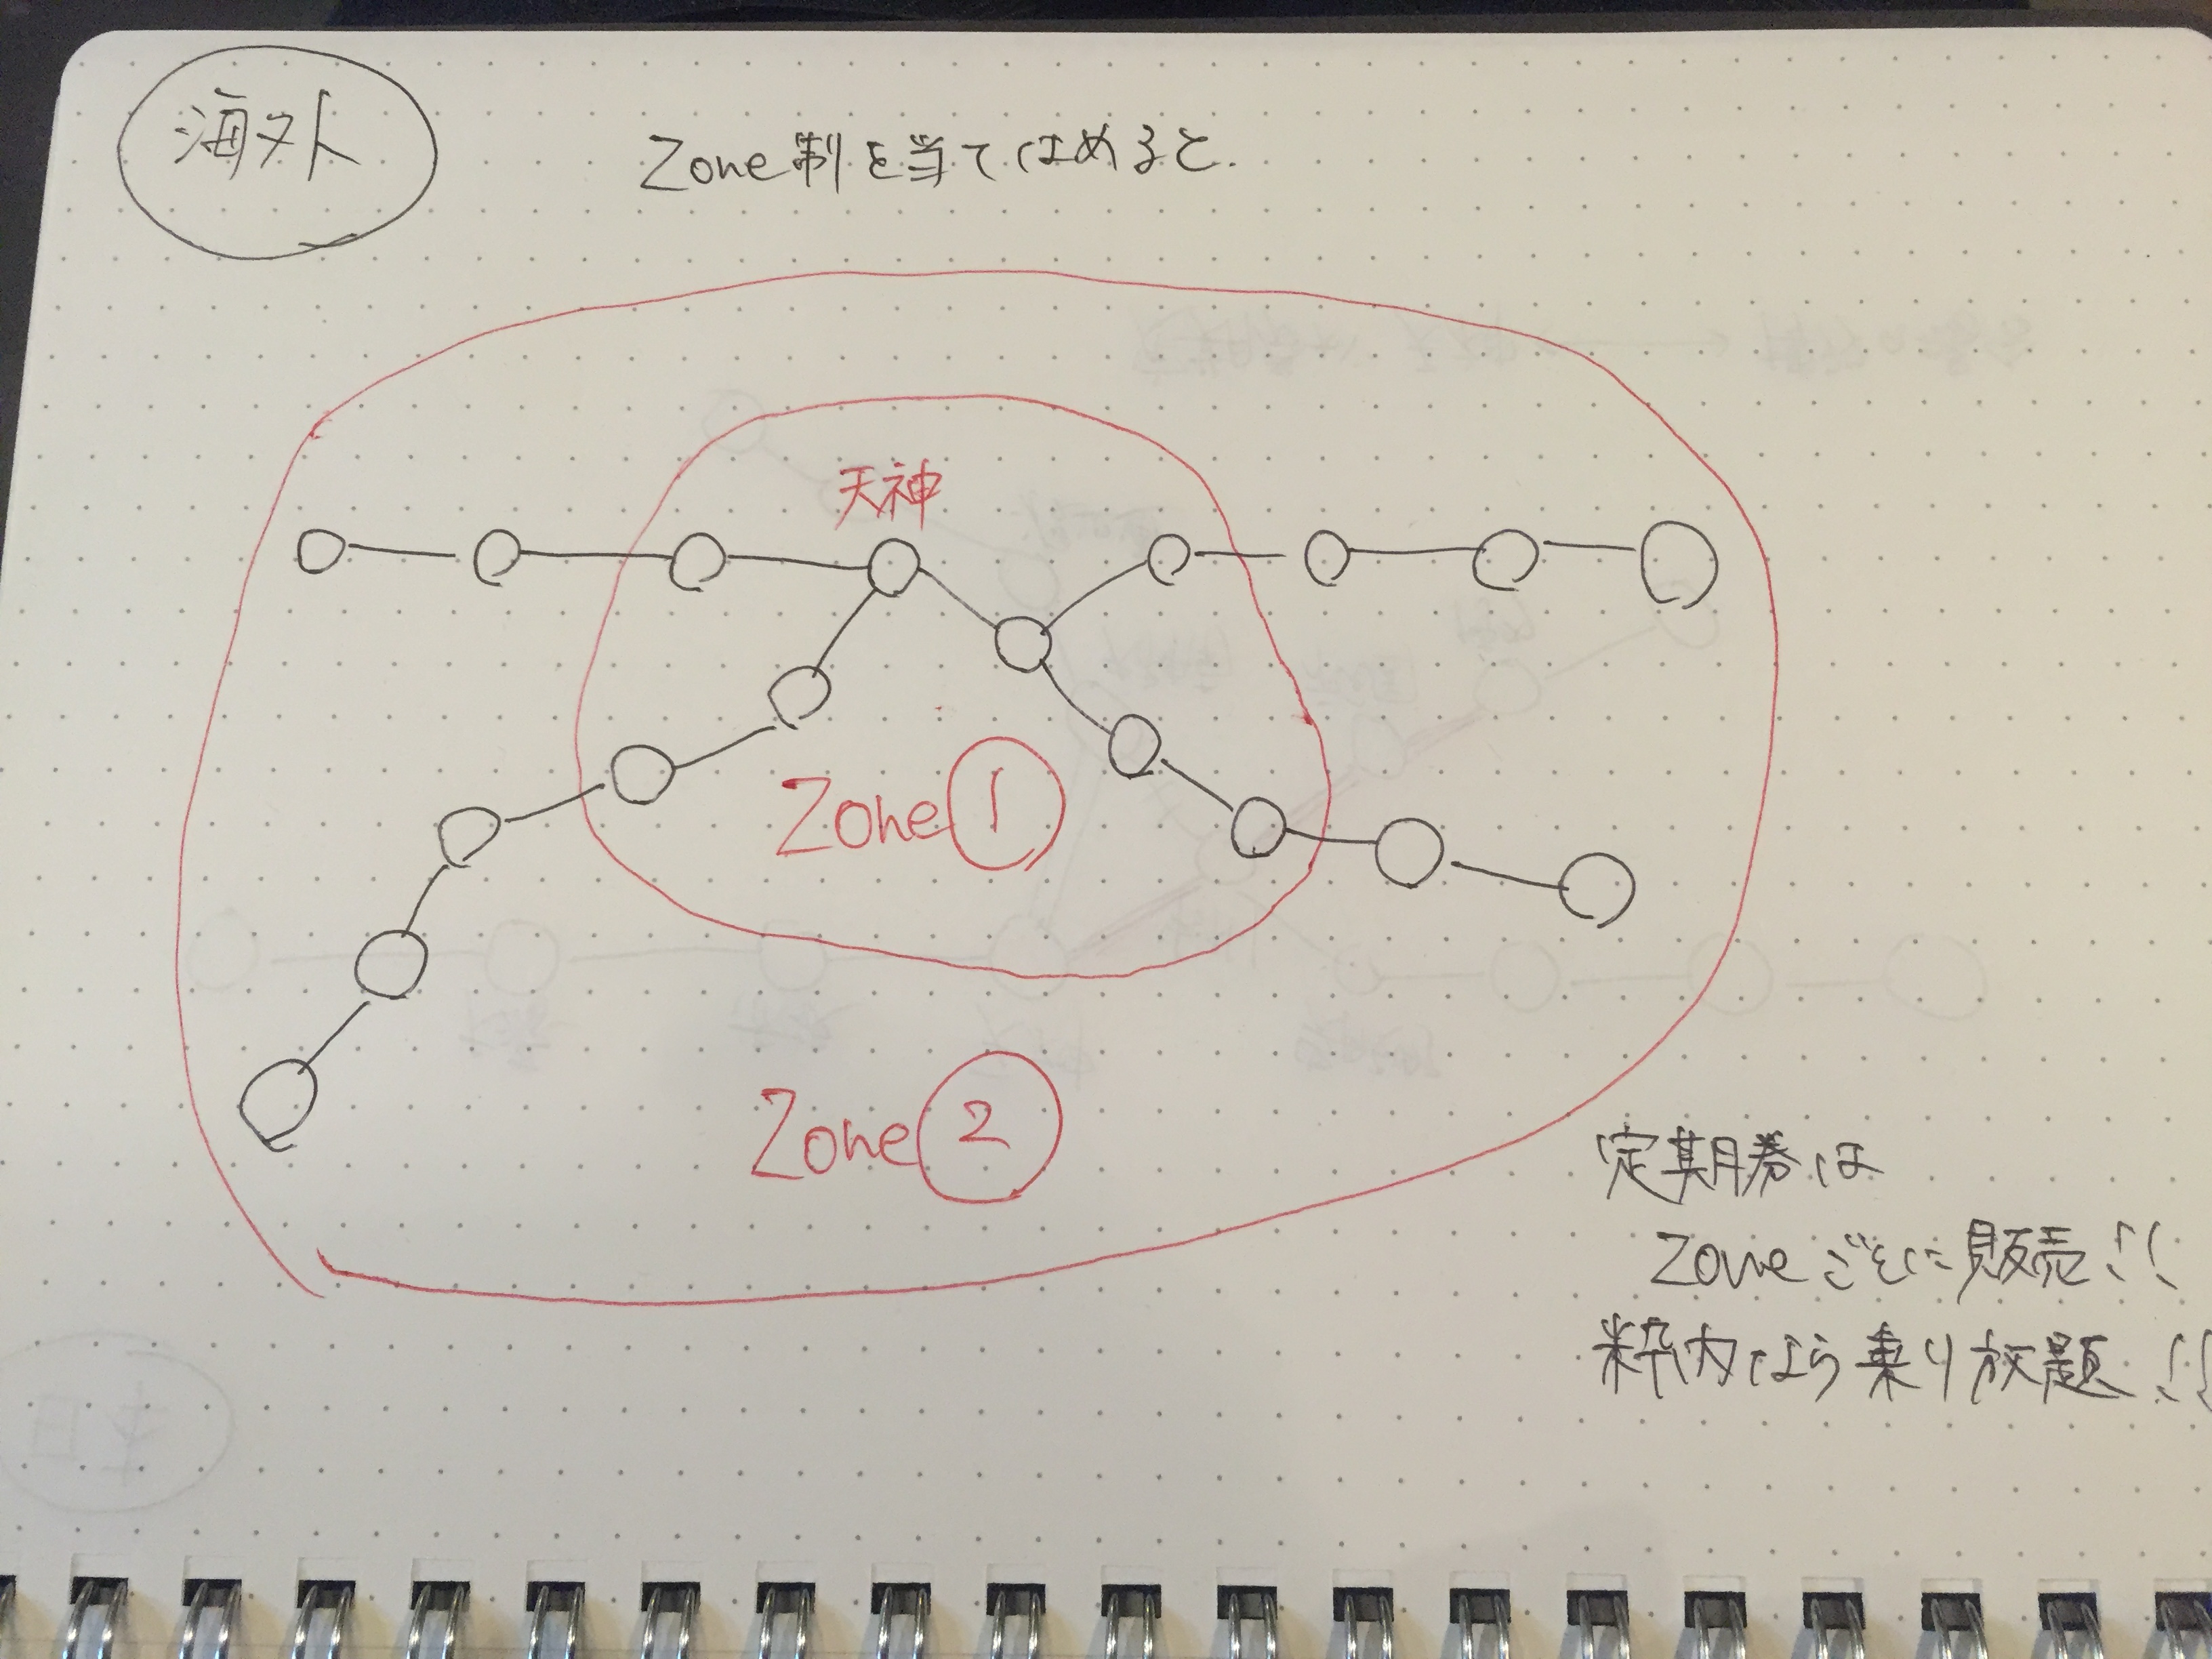 海外
Zone制を当てはめると.
天神
Zone①
Zone②
定期券は
Zoneごとに販売!!
枠内なら乗り放題!!